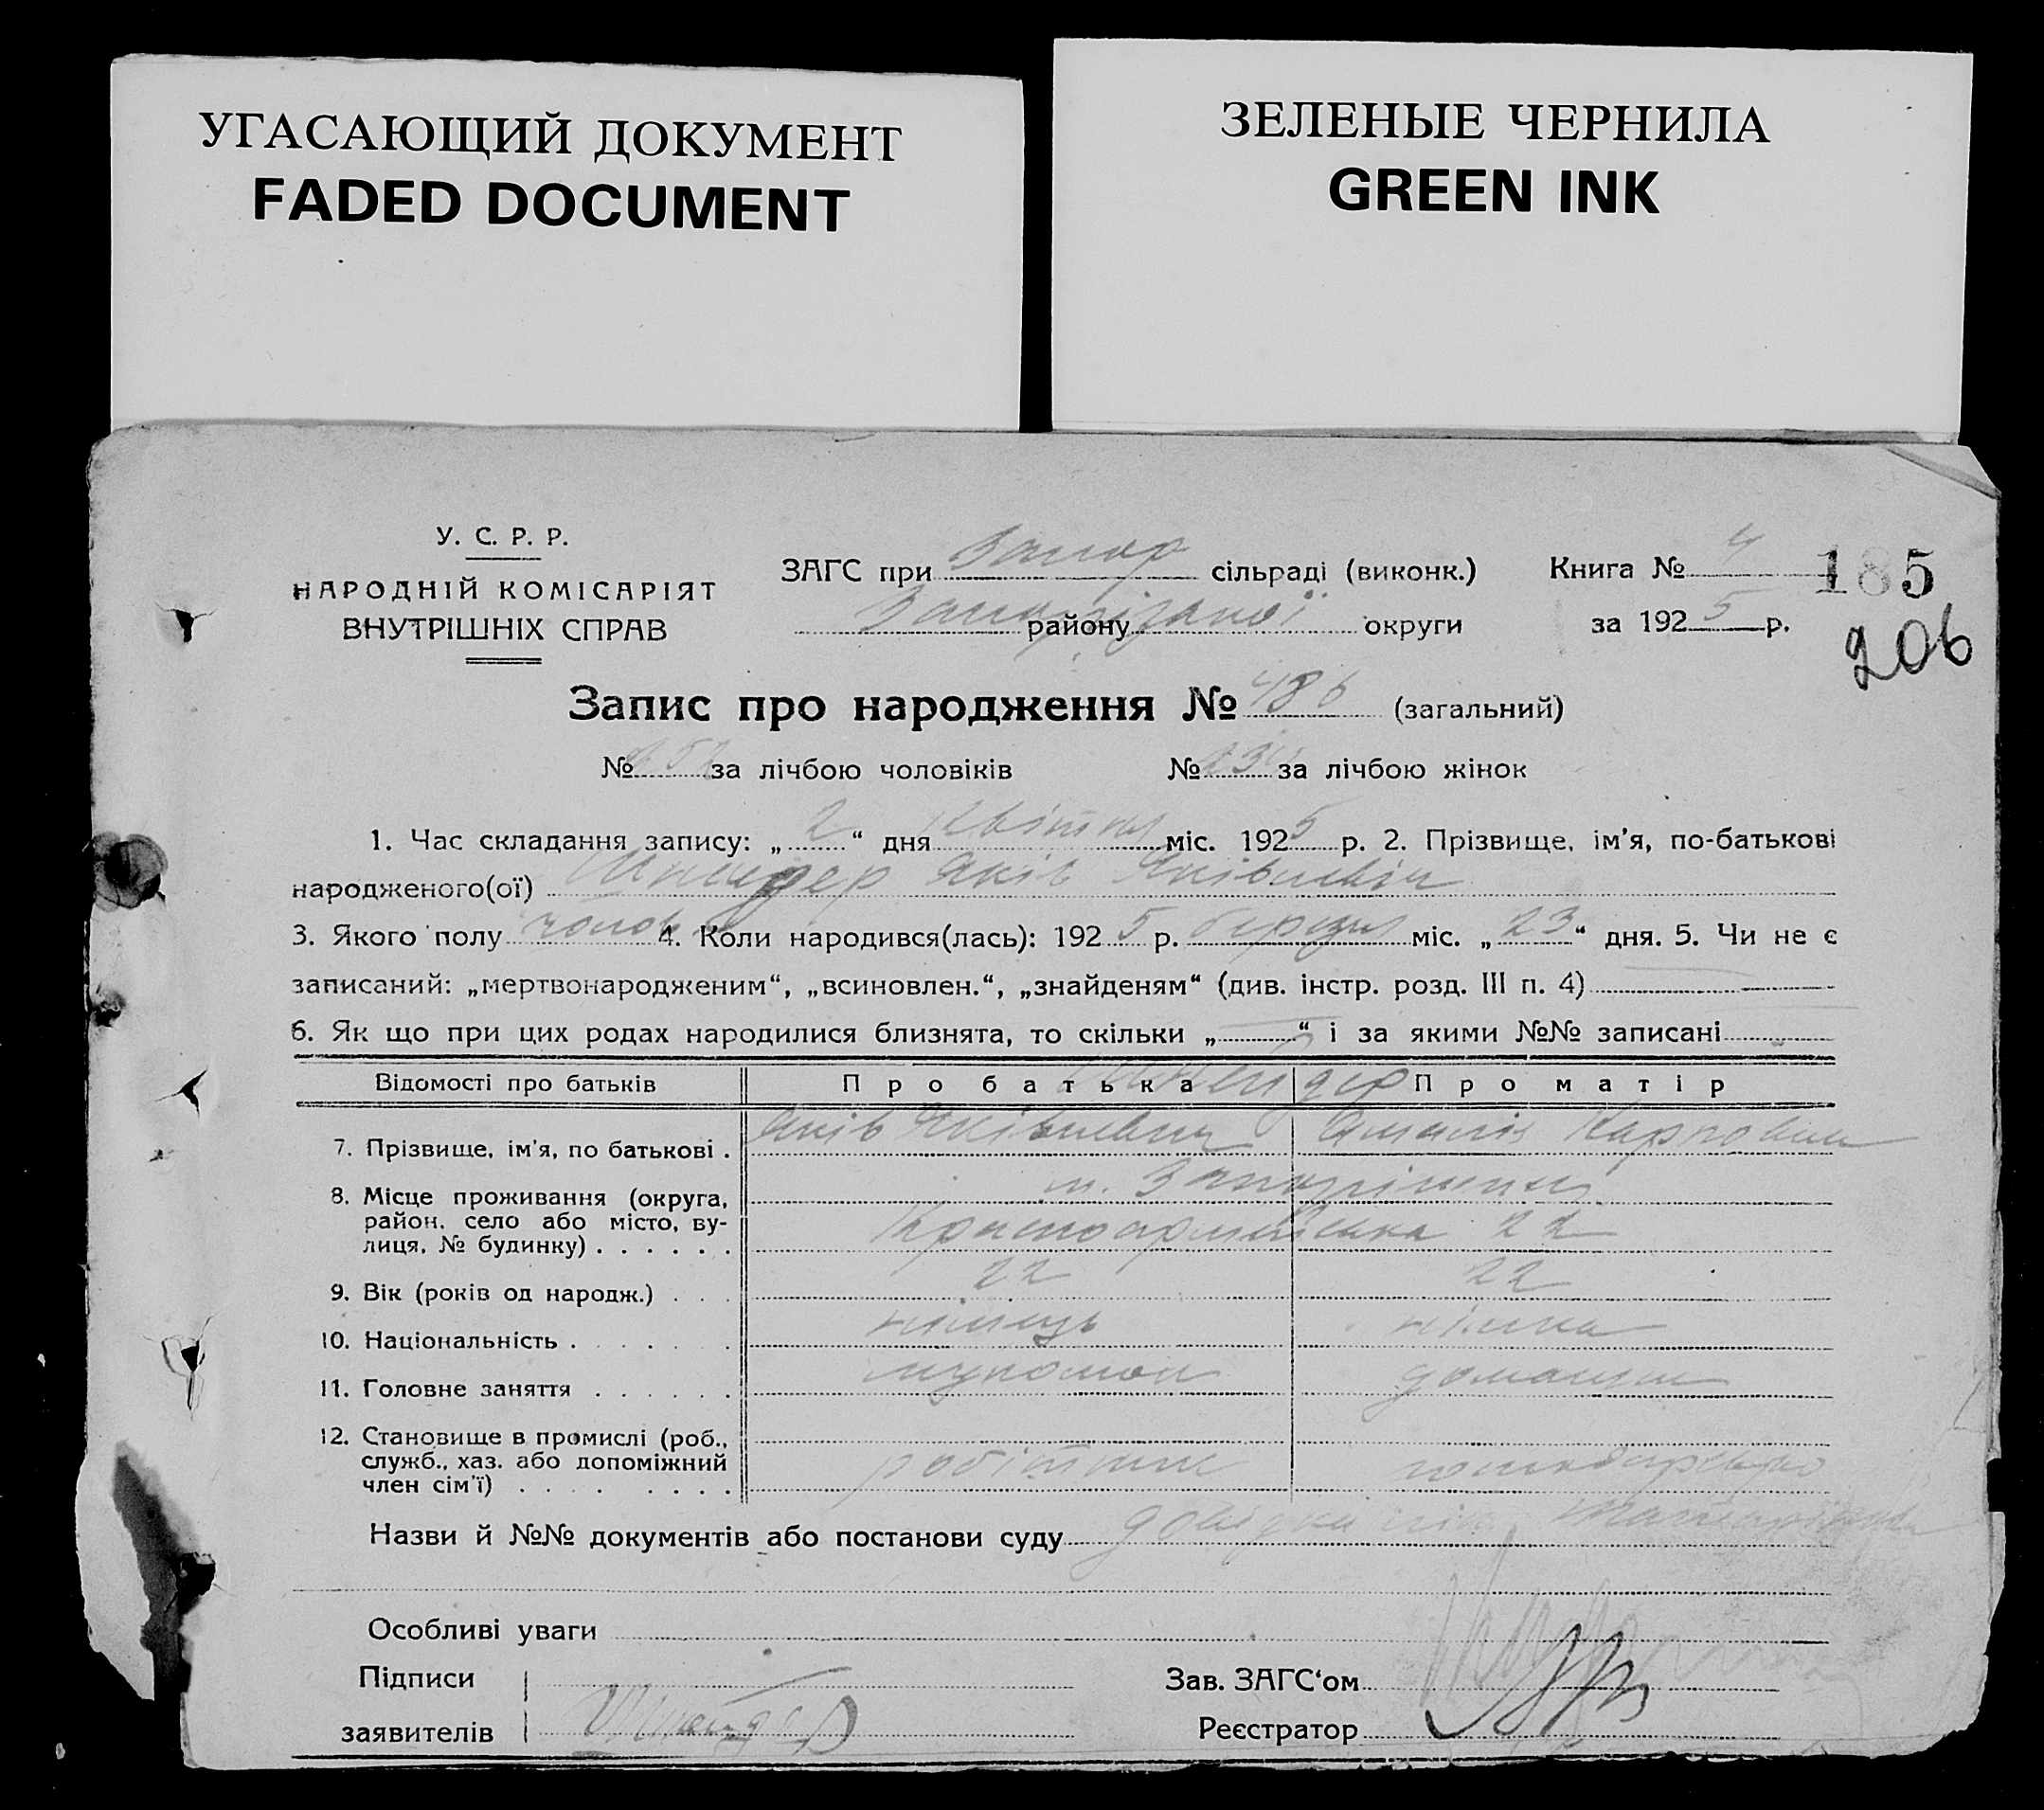 УГАСАЮЩИЙ ДОКУМЕНТ
FADED DOCUMENT
ЗЕЛЕНЫЕ ЧЕРНИЛА
GREEN INK
У. С. Р. Р.
НАРОДНІЙ КОМІСАРІЯТ
ВНУТРІШНІХ СПРАВ
ЗАГС при Запор сільраді (виконк.)
району Запорізької округи
Книга № 4
за 1925 р.
185
206
Запис про народження № 486 (загальний)
№ 252 за лічбою чоловіків № 234 за лічбою жінок
1. Час складання запису: „2“ дня Квітня міс. 1925 р. 2. Прізвище, ім'я, по-батькові
народженого(ої) Шнейдер Яків Яківлевіч
3. Якого полу чолов 4. Коли народився(лась): 1925 р. березня міс. „23“ дня. 5. Чи не є
записаний: „мертвонародженим“, „всиновлен.“, „знайденям“ (див. інстр. розд. III п. 4)
6. Як що при цих родах народилися близнята, то скільки „ “ і за якими №№ записані
Відомості про батьків Про батька Про матір
Шнейдер
7. Прізвище, ім'я, по батькові . Яків Яківлевич Амалія Карловна
8. Місце проживання (округа, м. Запоріжжя
район, село або місто, ву-
лиця, № будинку) . . . . . . Красноармейська 22
9. Вік (років од народж.) . . . 22 22
10. Національність . . . . . . . німець німка
11. Головне заняття . . . . . . домашн
12. Становище в промислі (роб.,
служб., хаз. або допоміжний робітник
член сім'ї) . . . . . . . .
Назви й №№ документів або постанови суду довідка
Особливі уваги
Підписи
заявителів Шнайдер
Зав. ЗАГС'ом
Реєстратор